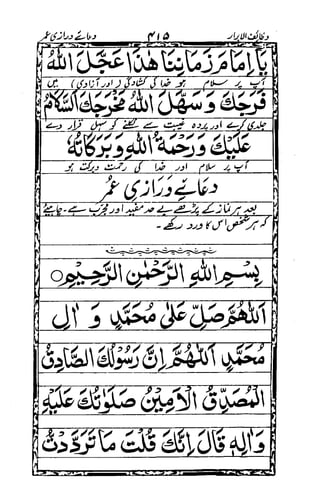 وظائف الابرار ۴۱۵ دعائے درازی عمر
يَا اِمَامَ زَمَانِنَا هٰذَا عَجَّلَ اللّٰهُ
آپ پر سلام ہو خدا کی کشادگی (اور آزادی) میں
فَرَجَكَ وَسَهَّلَ اللّٰهُ مَخْرَجَكَ اَلسَّلَامُ
جلدی کرے اور پردہ غیبت سے نکلنے کو سہل قرار دے
عَلَيْكَ وَرَحْمَةُ اللّٰهِ وَبَرَكَاتُهُ
آپ پر سلام اور خدا کی رحمت و برکت ہو
دعائے درازی عمر
بعد ہر نماز کے پڑھے بے حد مفید اور مجرب ہے۔ چاہیئے
کہ ہر شخص اس کا ورد رکھے۔
بِسْمِ اللّٰهِ الرَّحْمٰنِ الرَّحِيْمِ○
اَللّٰهُمَّ صَلِّ عَلٰى مُحَمَّدٍ وَّ اٰلِ
مُحَمَّدٍ اَللّٰهُمَّ اِنَّ رَسُوْلَكَ الصَّادِقَ
الْمُصَدِّقَ الْاَمِيْنَ صَلَوٰتُكَ عَلَيْهِ
وَاٰلِهٖ قَالَ اِنَّكَ قُلْتَ مَا تَرَدَّدْتُ